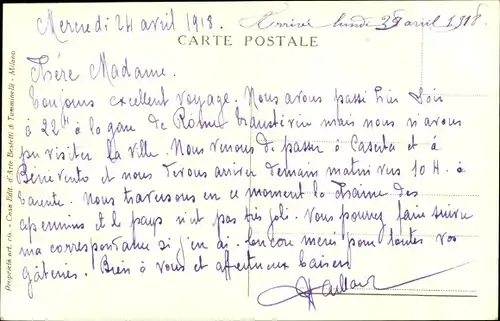 Mercredi 24 avril 1918. Arrivé lundi 29 avril 1918
CARTE POSTALE
Chère Madame.
Toujours excellent voyage. Nous avons passé hier soir
à 22H à la gare de Rome mais nous n'avons
pu visiter la ville. Nous venons de passer à Caserta et à
Bénévento et nous devons arriver demain matin vers 10 H. à
Tarente. Nous traversons en ce moment la chaîne des
apennins et le pays n'est pas très joli. Vous pouvez faire suivre
ma correspondance si j'en ai. Encore merci pour toutes vos
gâteries. Bien à vous et affectueux baisers
Proprietà art. ris. - Casa Edit. d'Arte Bestetti & Tumminelli - Milano